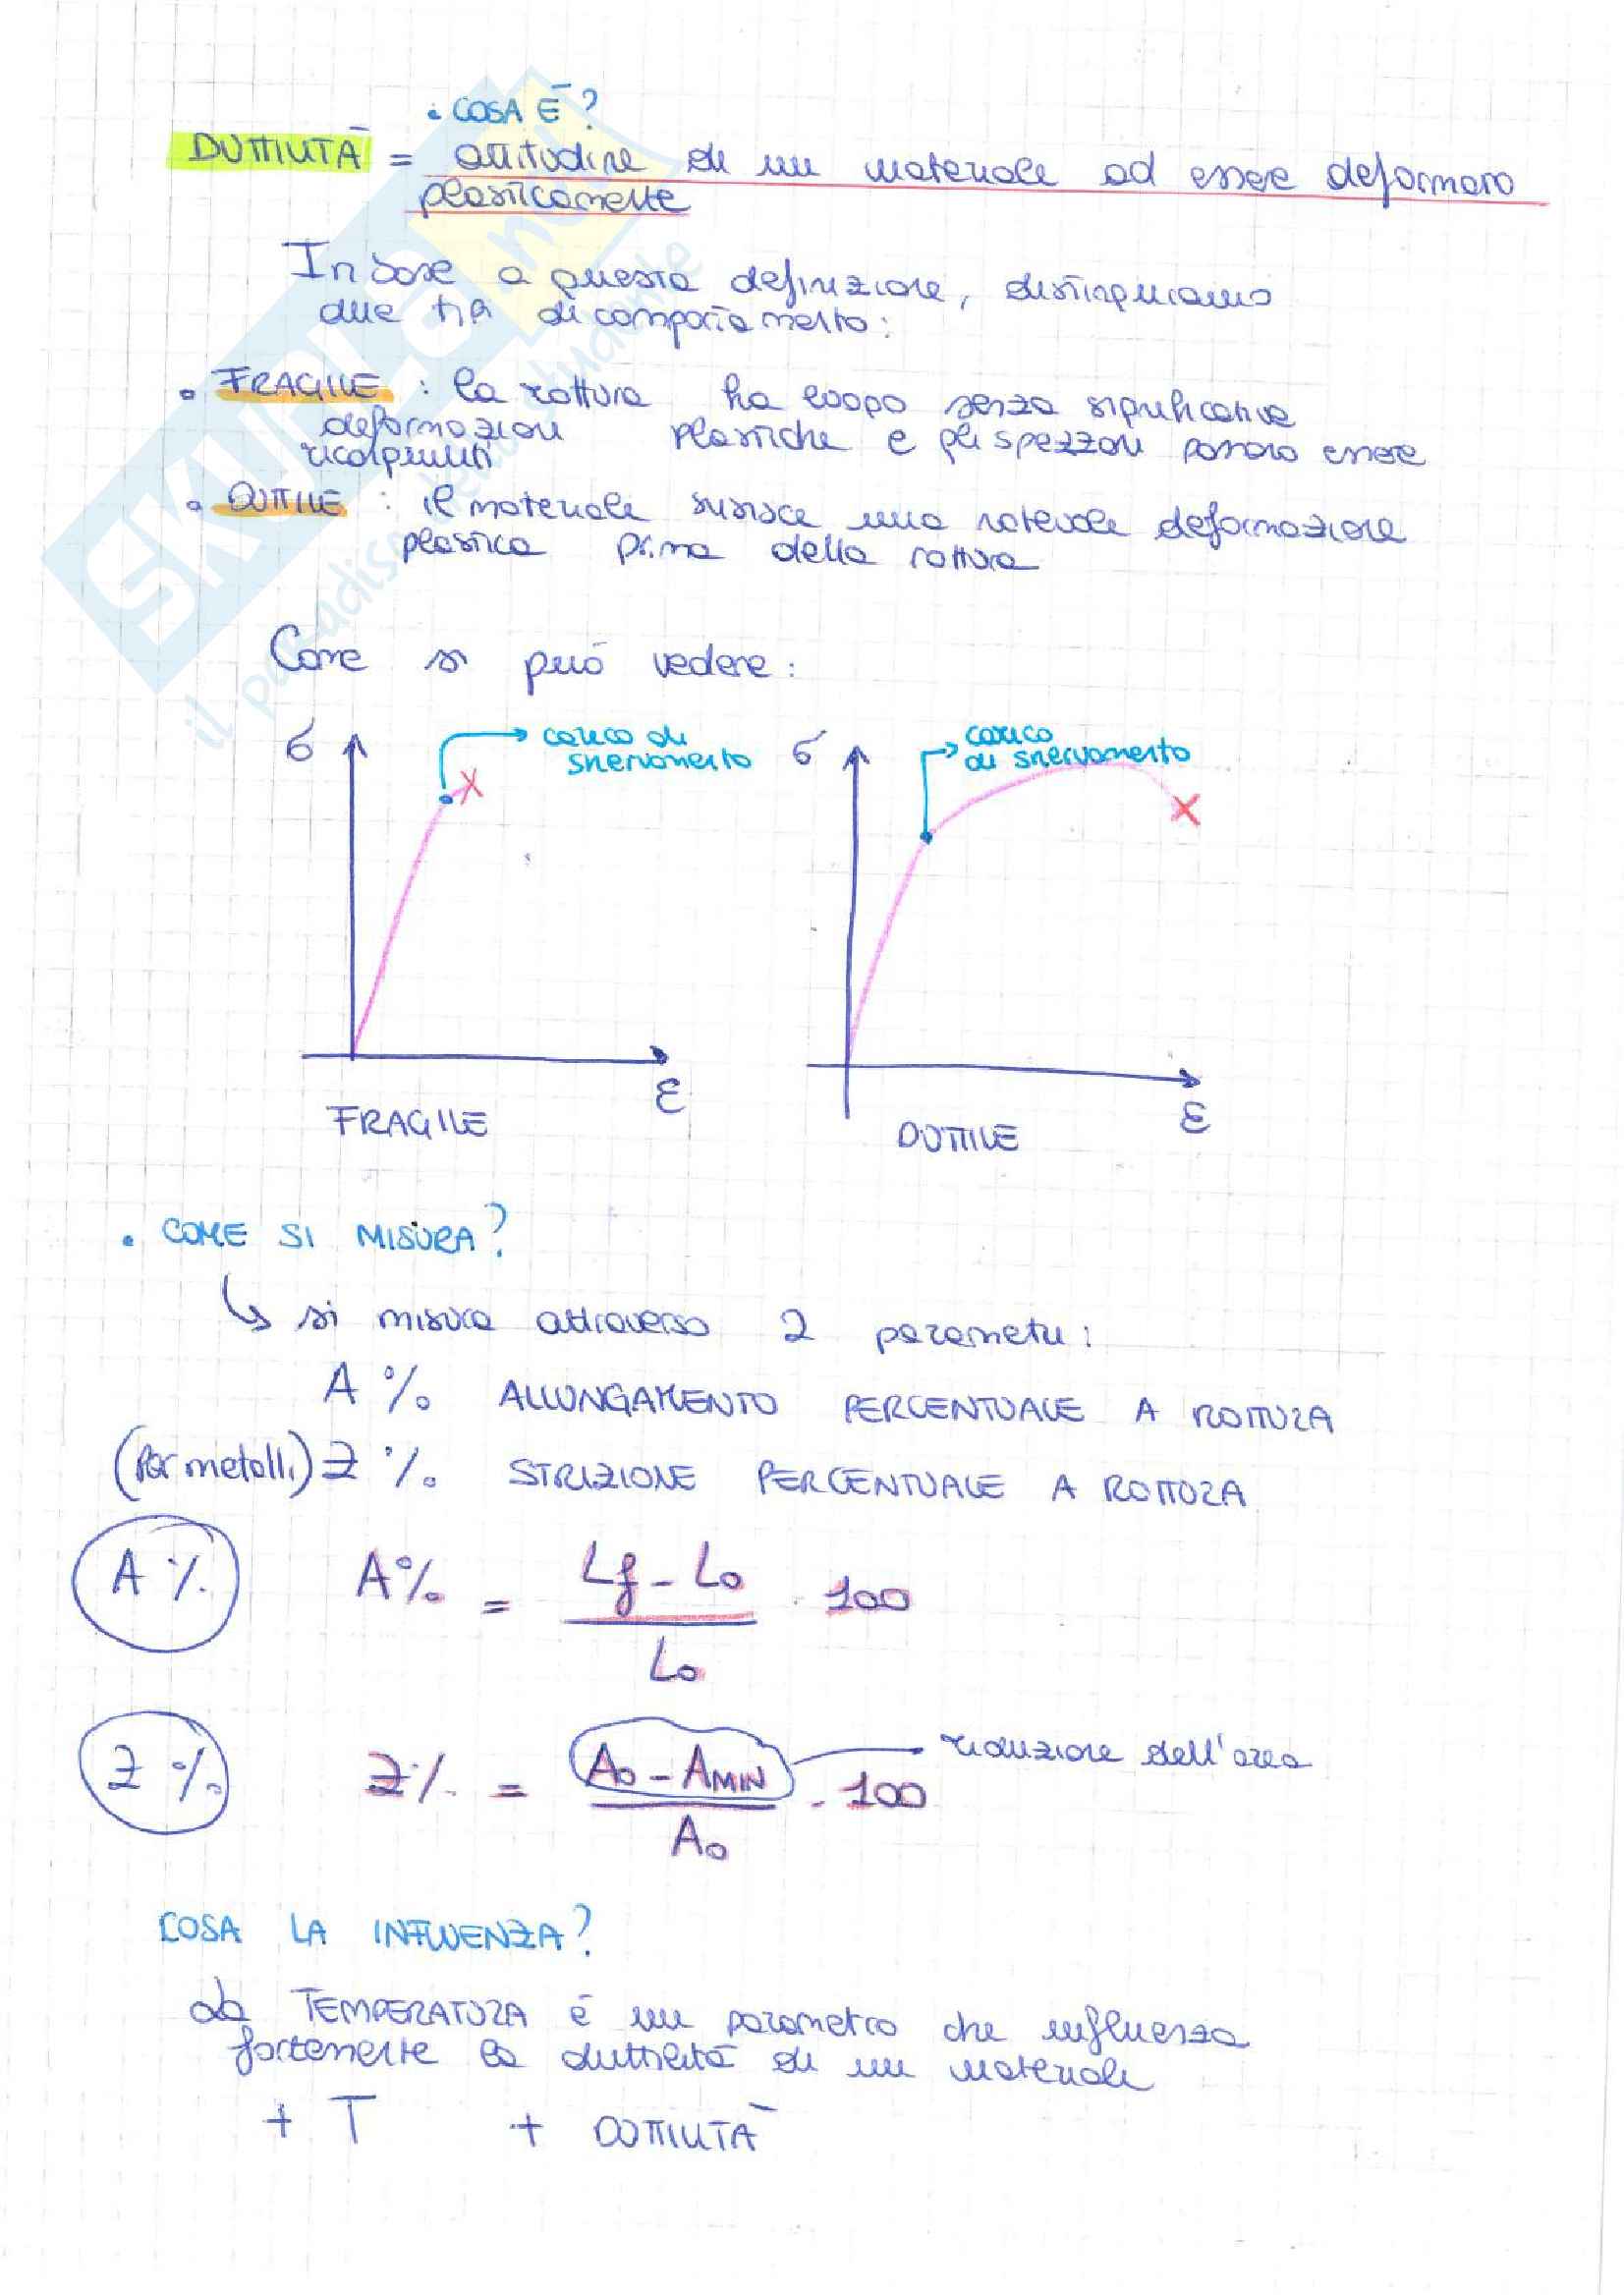 • COSA È?
DUTTILITÀ = attitudine di un materiale ad essere deformato
plasticamente
In base a questa definizione, distinguiamo
due tipi di comportamento:
• FRAGILE : la rottura ha luogo senza significative
deformazioni plastiche e gli spezzoni possono essere
ricongiunti
• DUTTILE : il materiale subisce una notevole deformazione
plastica prima della rottura
Come si può vedere:
σ carico di
snervamento
σ carico
di snervamento
ε
FRAGILE
ε
DUTTILE
• COME SI MISURA?
↳ si misura attraverso 2 parametri:
A % ALLUNGAMENTO PERCENTUALE A ROTTURA
(per metalli) Z % STRIZIONE PERCENTUALE A ROTTURA
A % A% = Lf - L0 / L0 · 100
Z % Z% = A0 - AMIN / A0 · 100 riduzione dell'area
COSA LA INFLUENZA?
La TEMPERATURA è un parametro che influenza
fortemente la duttilità di un materiale
+ T + DUTTILITÀ
SKUOLA.net
il paradiso dello studente